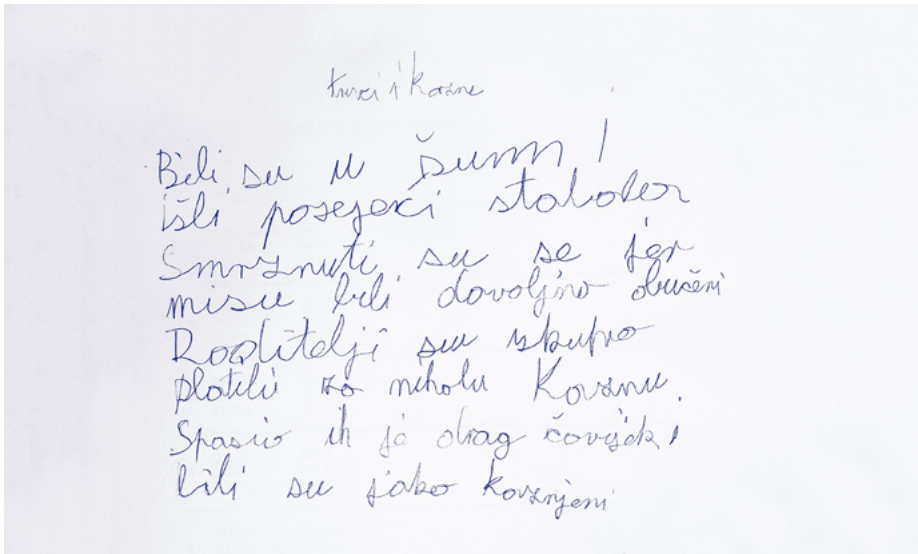 truci i kazne
Bili su u šumu i
išli posejeći stabala
Smrznuti su se jer
nisu bili dovoljno obučeni
Roditelji su skupo
platili za nihalu Kaznu.
Spasio ih je drag čovijek,
bili su jako kaznjeni